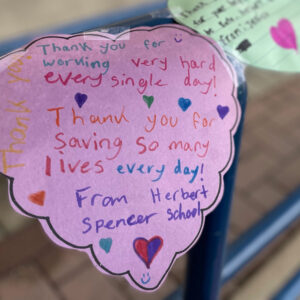 Thank you!
Thank you for
working very hard
every single day!
Thank you for
Saving so many
lives every day!
From Herbert
Spencer school